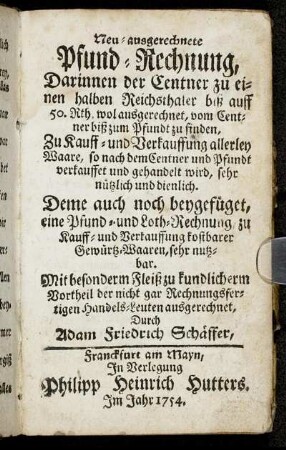 Neu-ausgerechnete
Pfund-Rechnung,
Darinnen der Centner zu ei-
nen halben Reichsthaler biß auff
50. Rth. wol ausgerechnet, vom Cent-
ner biß zum Pfundt zu finden,
Zu Kauff- und Verkauffung allerley
Waare, so nach dem Centner und Pfundt
verkauffet und gehandelt wird, sehr
nützlich und dienlich.
Deme auch noch beygefüget,
eine Pfund- und Loth-Rechnung, zu
Kauff- und Verkauffung kostbarer
Gewürtz-Waaren, sehr nutz-
bar.
Mit besonderm Fleiß zu kundlicherm
Vortheil der nicht gar Rechnungsfer-
tigen Handels-Leuten ausgerechnet,
Durch
Adam Friedrich Schäffer,
Franckfurt am Mayn,
In Verlegung
Philipp Heinrich Hutters.
Im Jahr 1754.